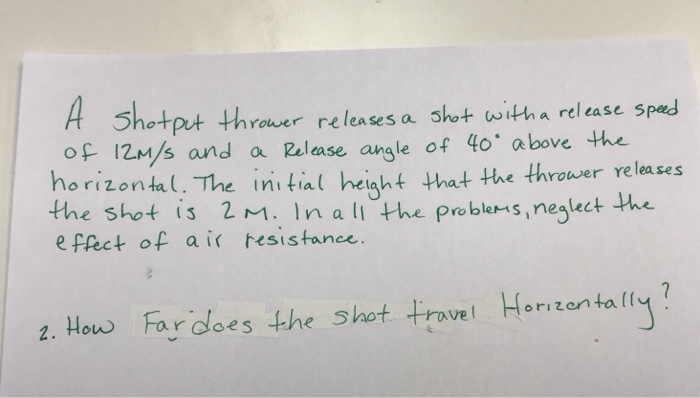 A Shotput thrower releases a shot with a release speed
of 12M/S and a Release angle of 40° above the
horizontal. The initial height that the thrower releases
the shot is 2 M. In all the problems, neglect the
effect of air resistance.
2. How Far does the shot travel Horizontally?